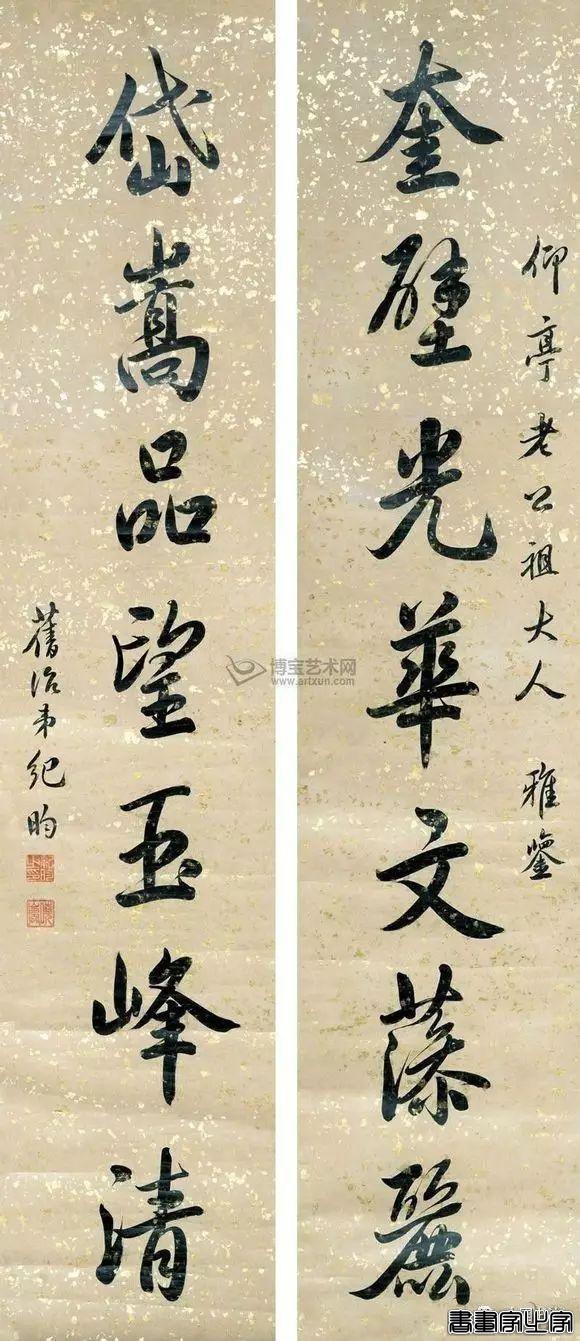 仰亭老公祖大人 雅鑒
奎壁光華文藻麗
岱嵩品望玉峰清
舊治弟紀昀
博宝艺术网
www.artxun.com
書畫家必家